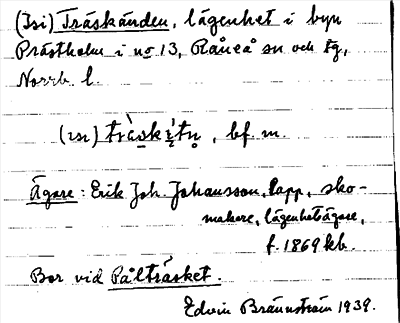 (Isi) Träskänden, lägenhet i byn
Prästholm i no 13, Råneå sn och tg,
Norrb. l.
(ısı) bf. m.
Ägare: Erik Joh. Johansson, Lapp, sko-
makare, lägenhetsägare,
f. 1869 kb.
Bor vid Pålträsket.
Edvin Brännström 1939.